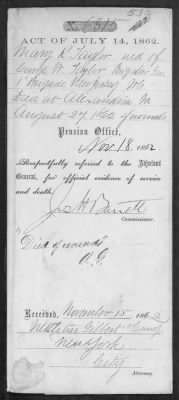 6315
532
ACT OF JULY 14, 1862.
Mary K Taylor wid of
George W. Taylor Brig der Gen
Brigade New Jersey Vs
died at Alexandria Va
August 1862 of wounds
Pension Office,
Nov. 18, 1862
Respectfully referred to the Adjutant
General, for official evidence of service
and death.
Jos H Barrett
Commissioner.
Died of wounds
A.G.
Received, November 15 1862
Gilbert &
New York
City
Attorney.